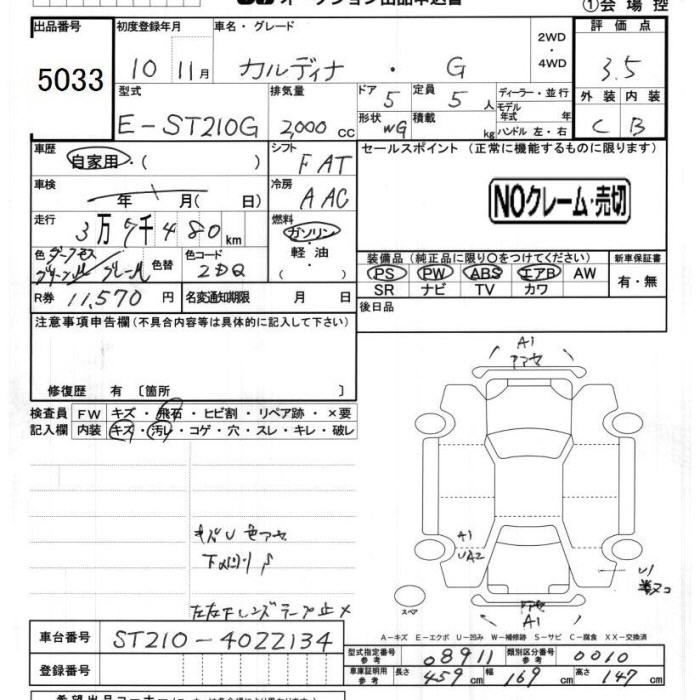 ①会場控
出品番号
5033
初度登録年月
10 11月
車名・グレード
カルディナ ・ G
2WD
・
4WD
評価点
3.5
型式
E-ST210G
排気量
2,000 cc
ドア
5
定員
5 人
形状
WG
積載
kg
ディーラー・並行
モデル
年式 年
ハンドル 左・右
外装 内装
C B
車歴
自家用・( )
シフト
FAT
セールスポイント (正常に機能するものに限ります)
車検
年 月(日)
冷房
AAC
NOクレーム・売切
走行
3万7千480km
燃料
ガソリン
・
軽油
( )
色
色替
色コード
2DQ
装備品 (純正品に限り○をつけてください)
新車保証書
PS PW ABS エアB AW
SR ナビ TV カワ
有・無
R券 11,570 円
名変通知期限 月 日
後日品
注意事項申告欄(不具合内容等は具体的に記入して下さい)
修復歴 有〔箇所 〕
検査員
記入欄
FW キズ・飛石・ヒビ割・リペア跡・×要
内装 キズ・汚レ・コゲ・穴・スレ・キレ・破レ
A1
A1
UA2
U1
スペア
A1
A-キズ E-エクボ U-凹み W-補修跡 S-サビ C-腐食 XX-交換済
車台番号
ST210-4022134
登録番号
型式指定番号
参考
08911
類別区分番号
参考
0010
車庫証明用
参考
長さ 459 cm 幅 169 cm 高さ 147 cm